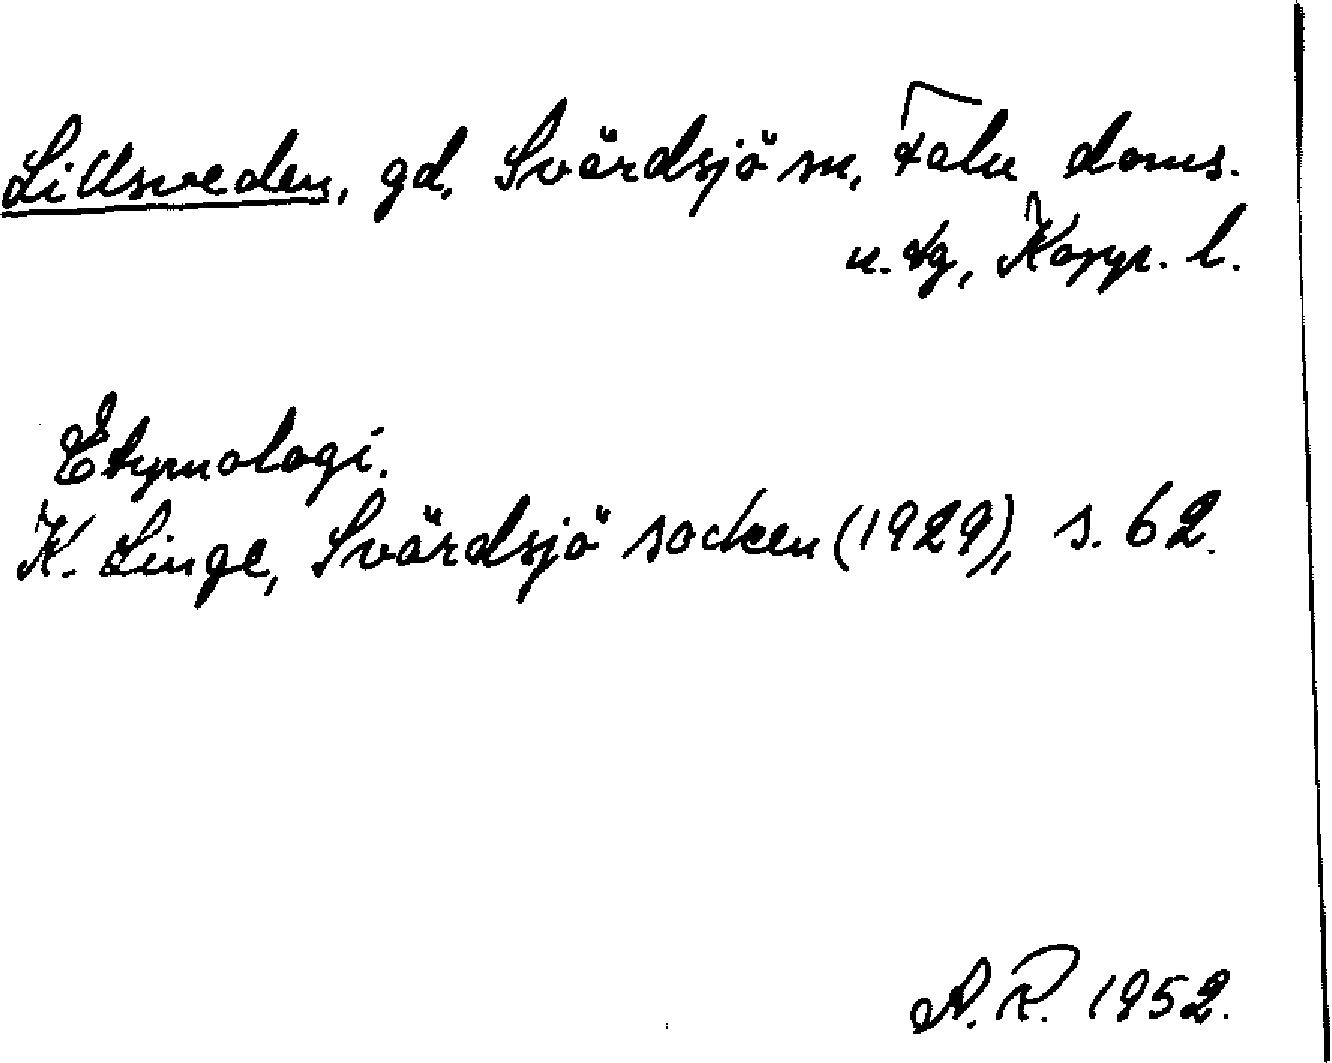 Lillsveden, gd, Svärdsjö sn, Falu doms.
n. tg, Kopp. l.
Etymologi.
K. Linge, Svärdsjö socken (1929), s. 62.
A. R. 1952.